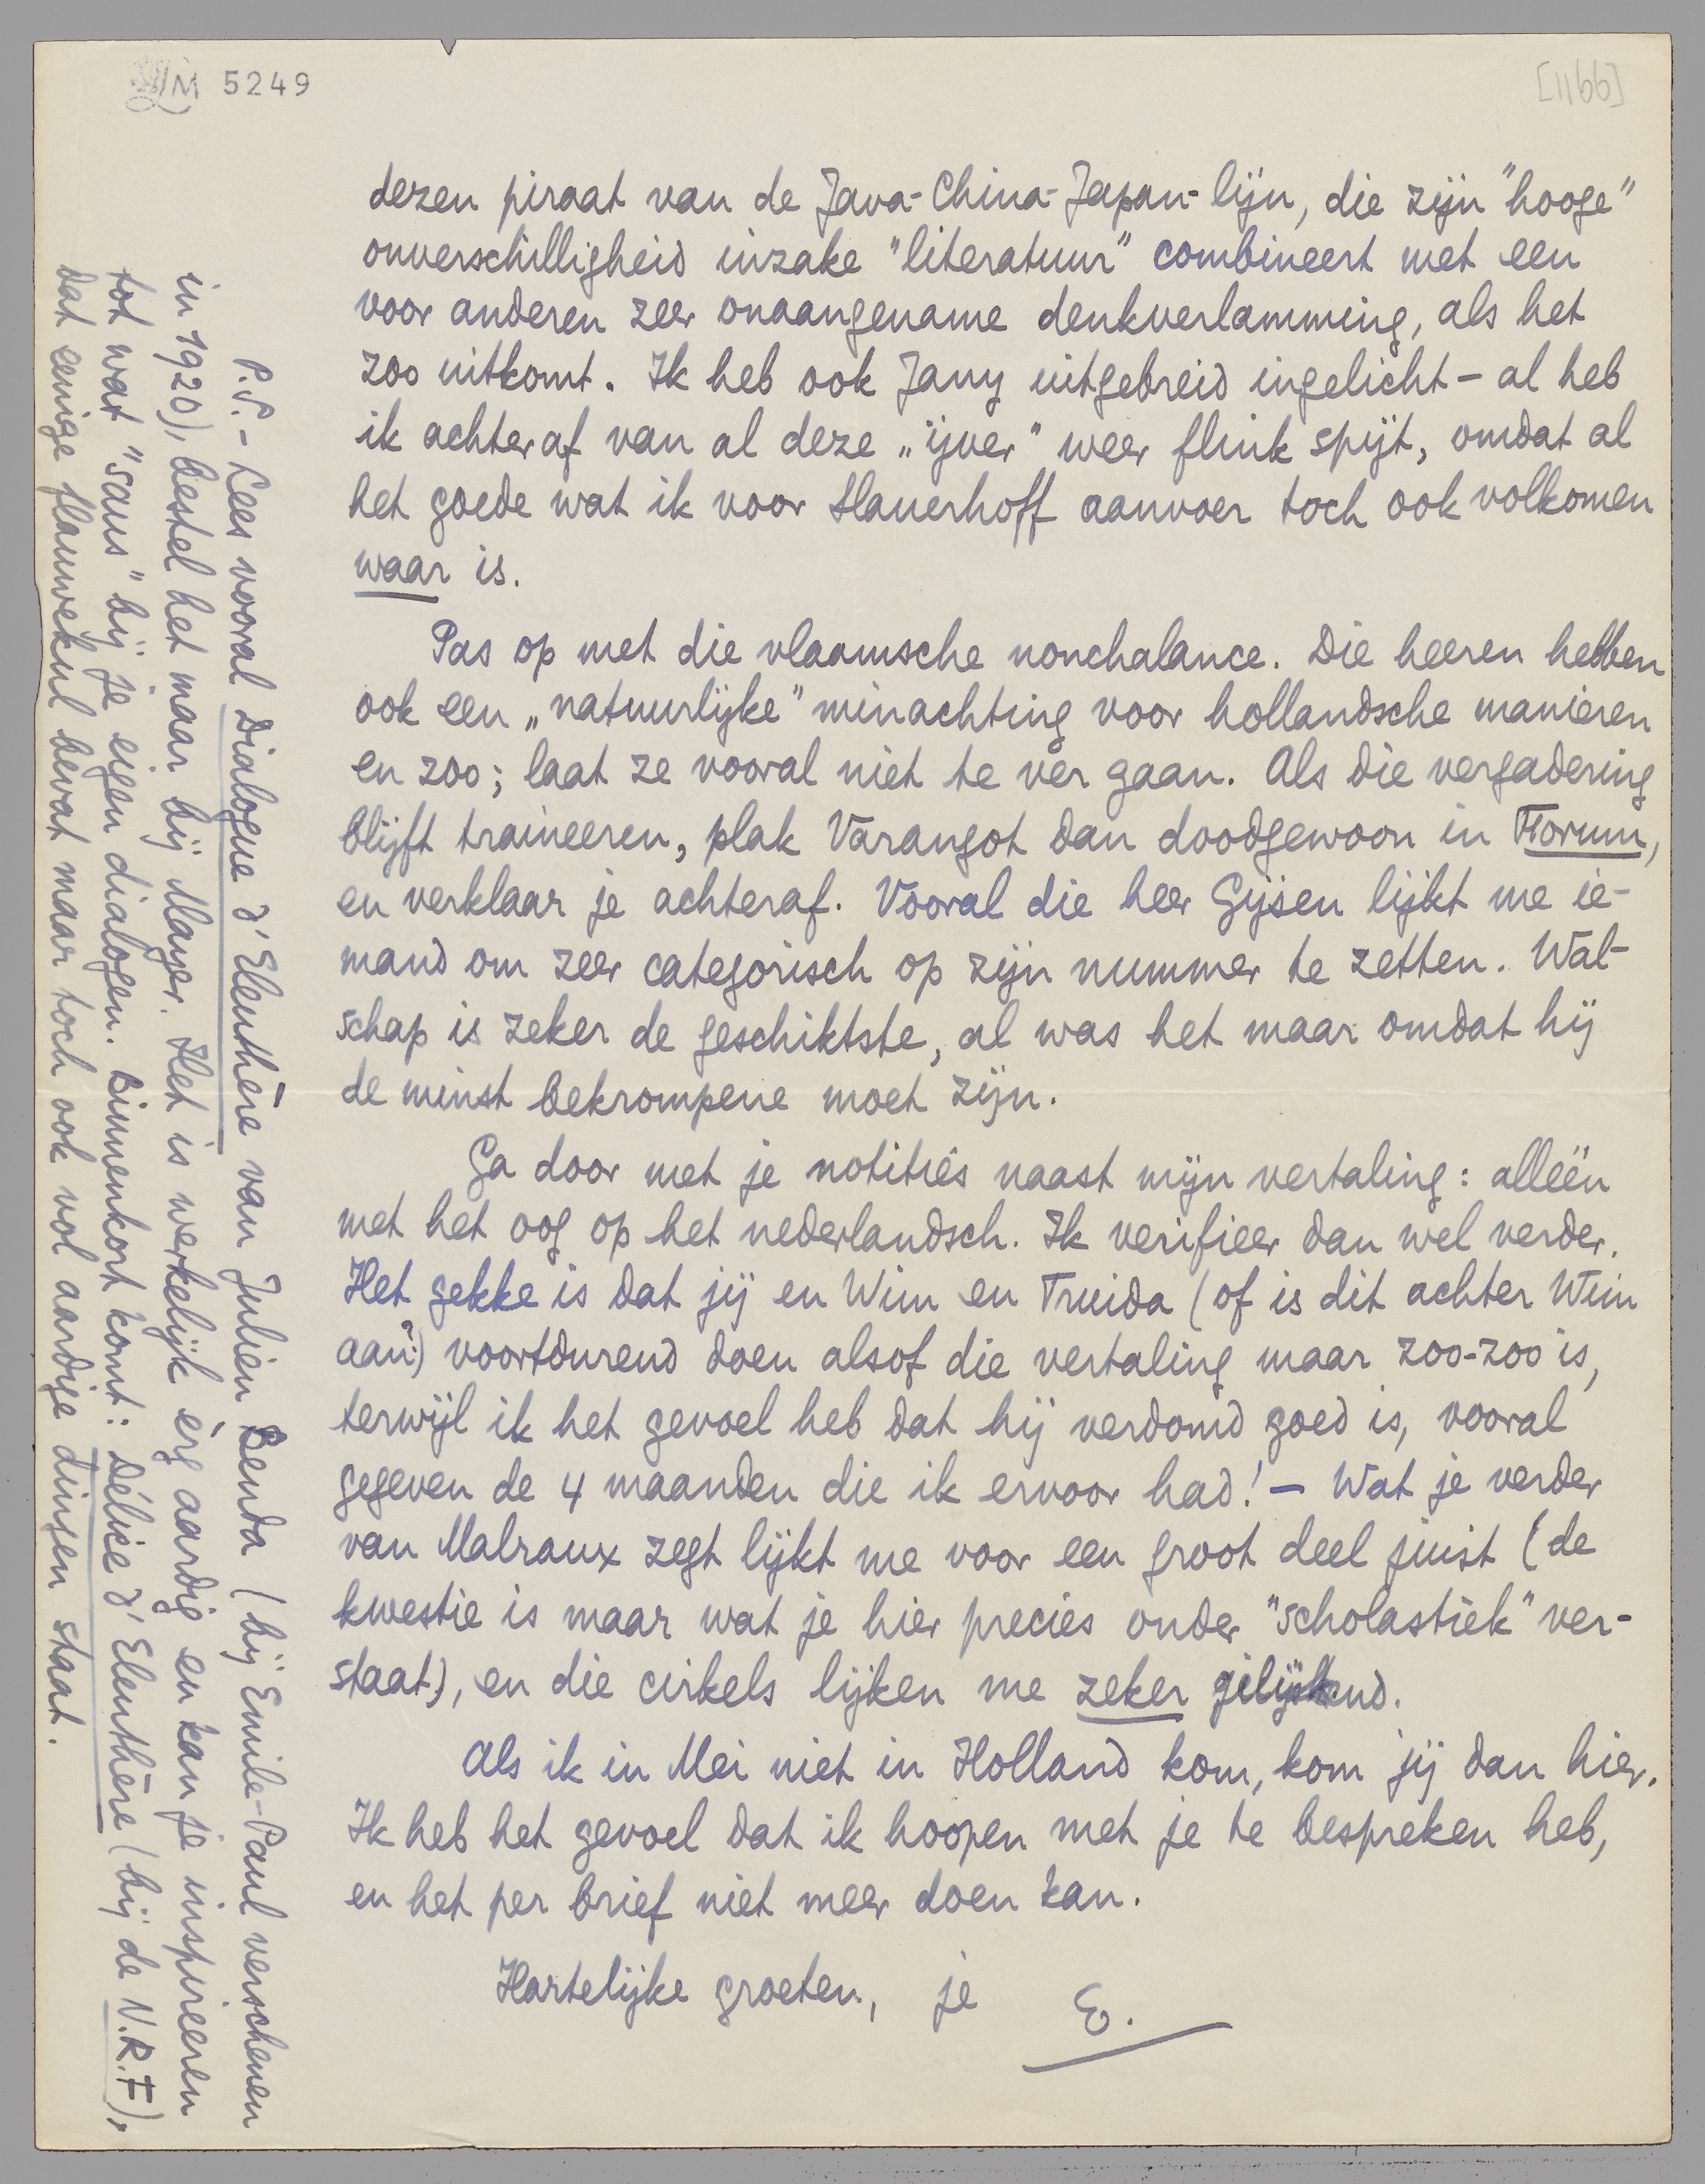 LM 5249
[1166]
dezen piraat van de Java-China-Japan-lijn, die zijn "hooge"
onverschilligheid inzake "literatuur" combineert met een
voor anderen zeer onaangename denkverlamming, als het
zoo uitkomt. Ik heb ook Jany uitgebreid ingelicht – al heb
ik achteraf van al deze „ijver" weer flink spijt, omdat al
het goede wat ik voor Slauerhoff aanvoer toch ook volkomen
waar is.
Pas op met die vlaamsche nonchalance. Die heeren hebben
ook een „natuurlijke" minachting voor hollandsche manieren
en zoo; laat ze vooral niet te vèr gaan. Als die vergadering
blijft traineeren, plak Varangot dan doodgewoon in Forum,
en verklaar je achteraf. Vooral die heer Gijsen lijkt me ie-
mand om zeer categorisch op zijn nummer te zetten. Wal-
schap is zeker de geschiktste, al was het maar omdat hij
de minst bekrompene moet zijn.
Ga door met je notities naast mijn vertaling: alléén
met het oog op het nederlandsch. Ik verifieer dan wel verder.
Het gekke is dat jij en Wim en Truida (of is dit achter Wim
aan?) voortdurend doen alsof die vertaling maar zoo-zoo is,
terwijl ik het gevoel heb dat hij verdomd goed is, vooral
gegeven de 4 maanden die ik ervoor had! – Wat je verder
van Malraux zegt lijkt me voor een groot deel juist (de
kwestie is maar wat je hier precies onder "scholastiek" ver-
staat), en die cirkels lijken me zeker gelijkend.
Als ik in Mei niet in Holland kom, kom jij dan hier.
Ik heb het gevoel dat ik hoopen met je te bespreken heb,
en het per brief niet meer doen kan.
Hartelijke groeten, je E.
P.S. – Lees vooral Dialogue d'Eleuthère van Julien Benda (bij Emile-Paul verschenen
in 1920), bestel het maar bij Mayer. Het is werkelijk èrg aardig en kan je inspireeren
tot wat "saus" bij je eigen dialogen. Binnenkort komt: Délice d'Eleuthère (bij de N.R.F.),
dat eenige flauwekul bevat maar toch ook vol aardige dingen staat.